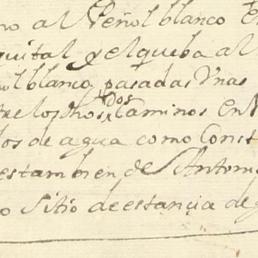 no al Peñol blanco E
quital y elqueba al
ol blanco pasadas Vnas
tre los dhos dos Caminos en
los de agua como Const
estambien de Antoni
o Sitio de estancia de